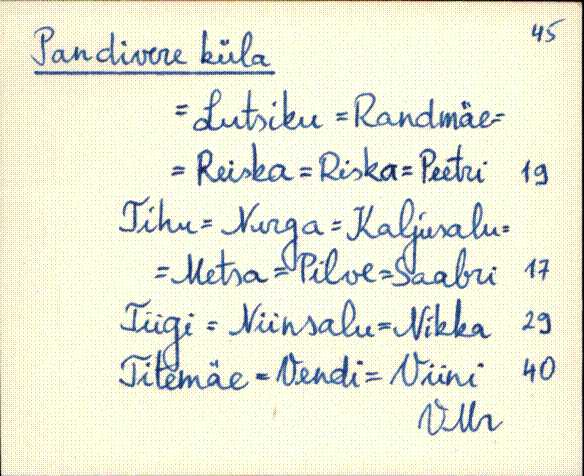 45
Pandivere küla
= Lutsiku = Randmäe=
= Reiska = Riska = Peetri 19
Tihu = Nurga = Kaljusalu=
= Metsa = Pilve = Saabri 17
Tiigi = Niinsalu = Nikka 29
Titemäe = Vendi = Viini 40
VMr